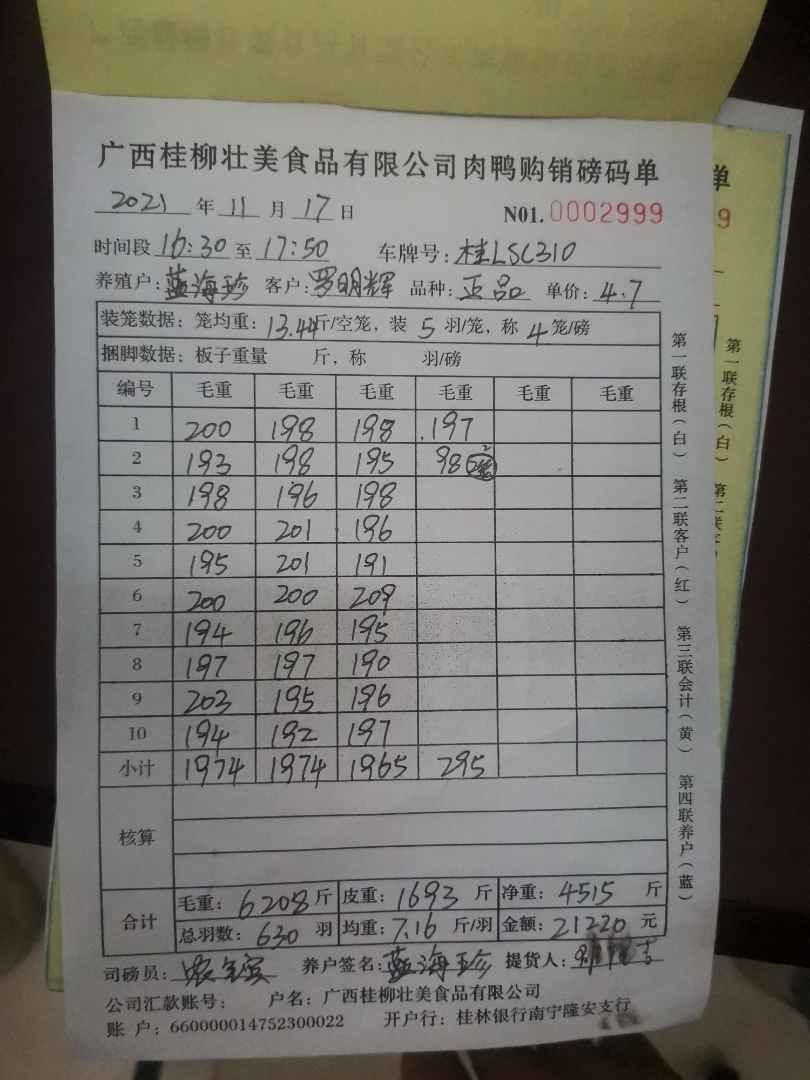 广西桂柳壮美食品有限公司肉鸭购销磅码单
2021 年 11 月 17 日 N01. 0002999
时间段 16:30 至 17:50 车牌号: 桂LSC310
养殖户: 蓝海珍 客户: 罗明辉 品种: 正品 单价: 4.7
装笼数据: 笼均重: 13.44斤/空笼, 装 5 羽/笼, 称 4 笼/磅
捆脚数据: 板子重量 斤, 称 羽/磅
编号 毛重 毛重 毛重 毛重 毛重 毛重
1 200 198 198 197
2 193 198 195 98 2笼
3 198 196 198
4 200 201 196
5 195 201 191
6 200 200 209
7 194 196 195
8 197 197 190
9 203 195 196
10 194 192 197
小计 1974 1974 1965 295
核算
合计 毛重: 6208 斤 皮重: 1693 斤 净重: 4515 斤
总羽数: 630 羽 均重: 7.16 斤/羽 金额: 21220 元
司磅员: 养户签名: 蓝海珍 提货人:
公司汇款账号: 户名: 广西桂柳壮美食品有限公司
账 户: 660000014752300022 开户行: 桂林银行南宁隆安支行
第一联存根(白) 第二联客户(红) 第三联会计(黄) 第四联养户(蓝)
单
9
第一联存根(白)
第二联客户